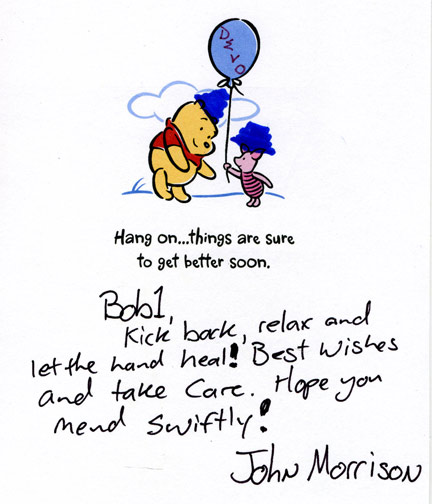 DEVO
Hang on...things are sure
to get better soon.
Bob1,
Kick back, relax and
let the hand heal! Best Wishes
and take Care. Hope you
mend Swiftly!
John Morrison